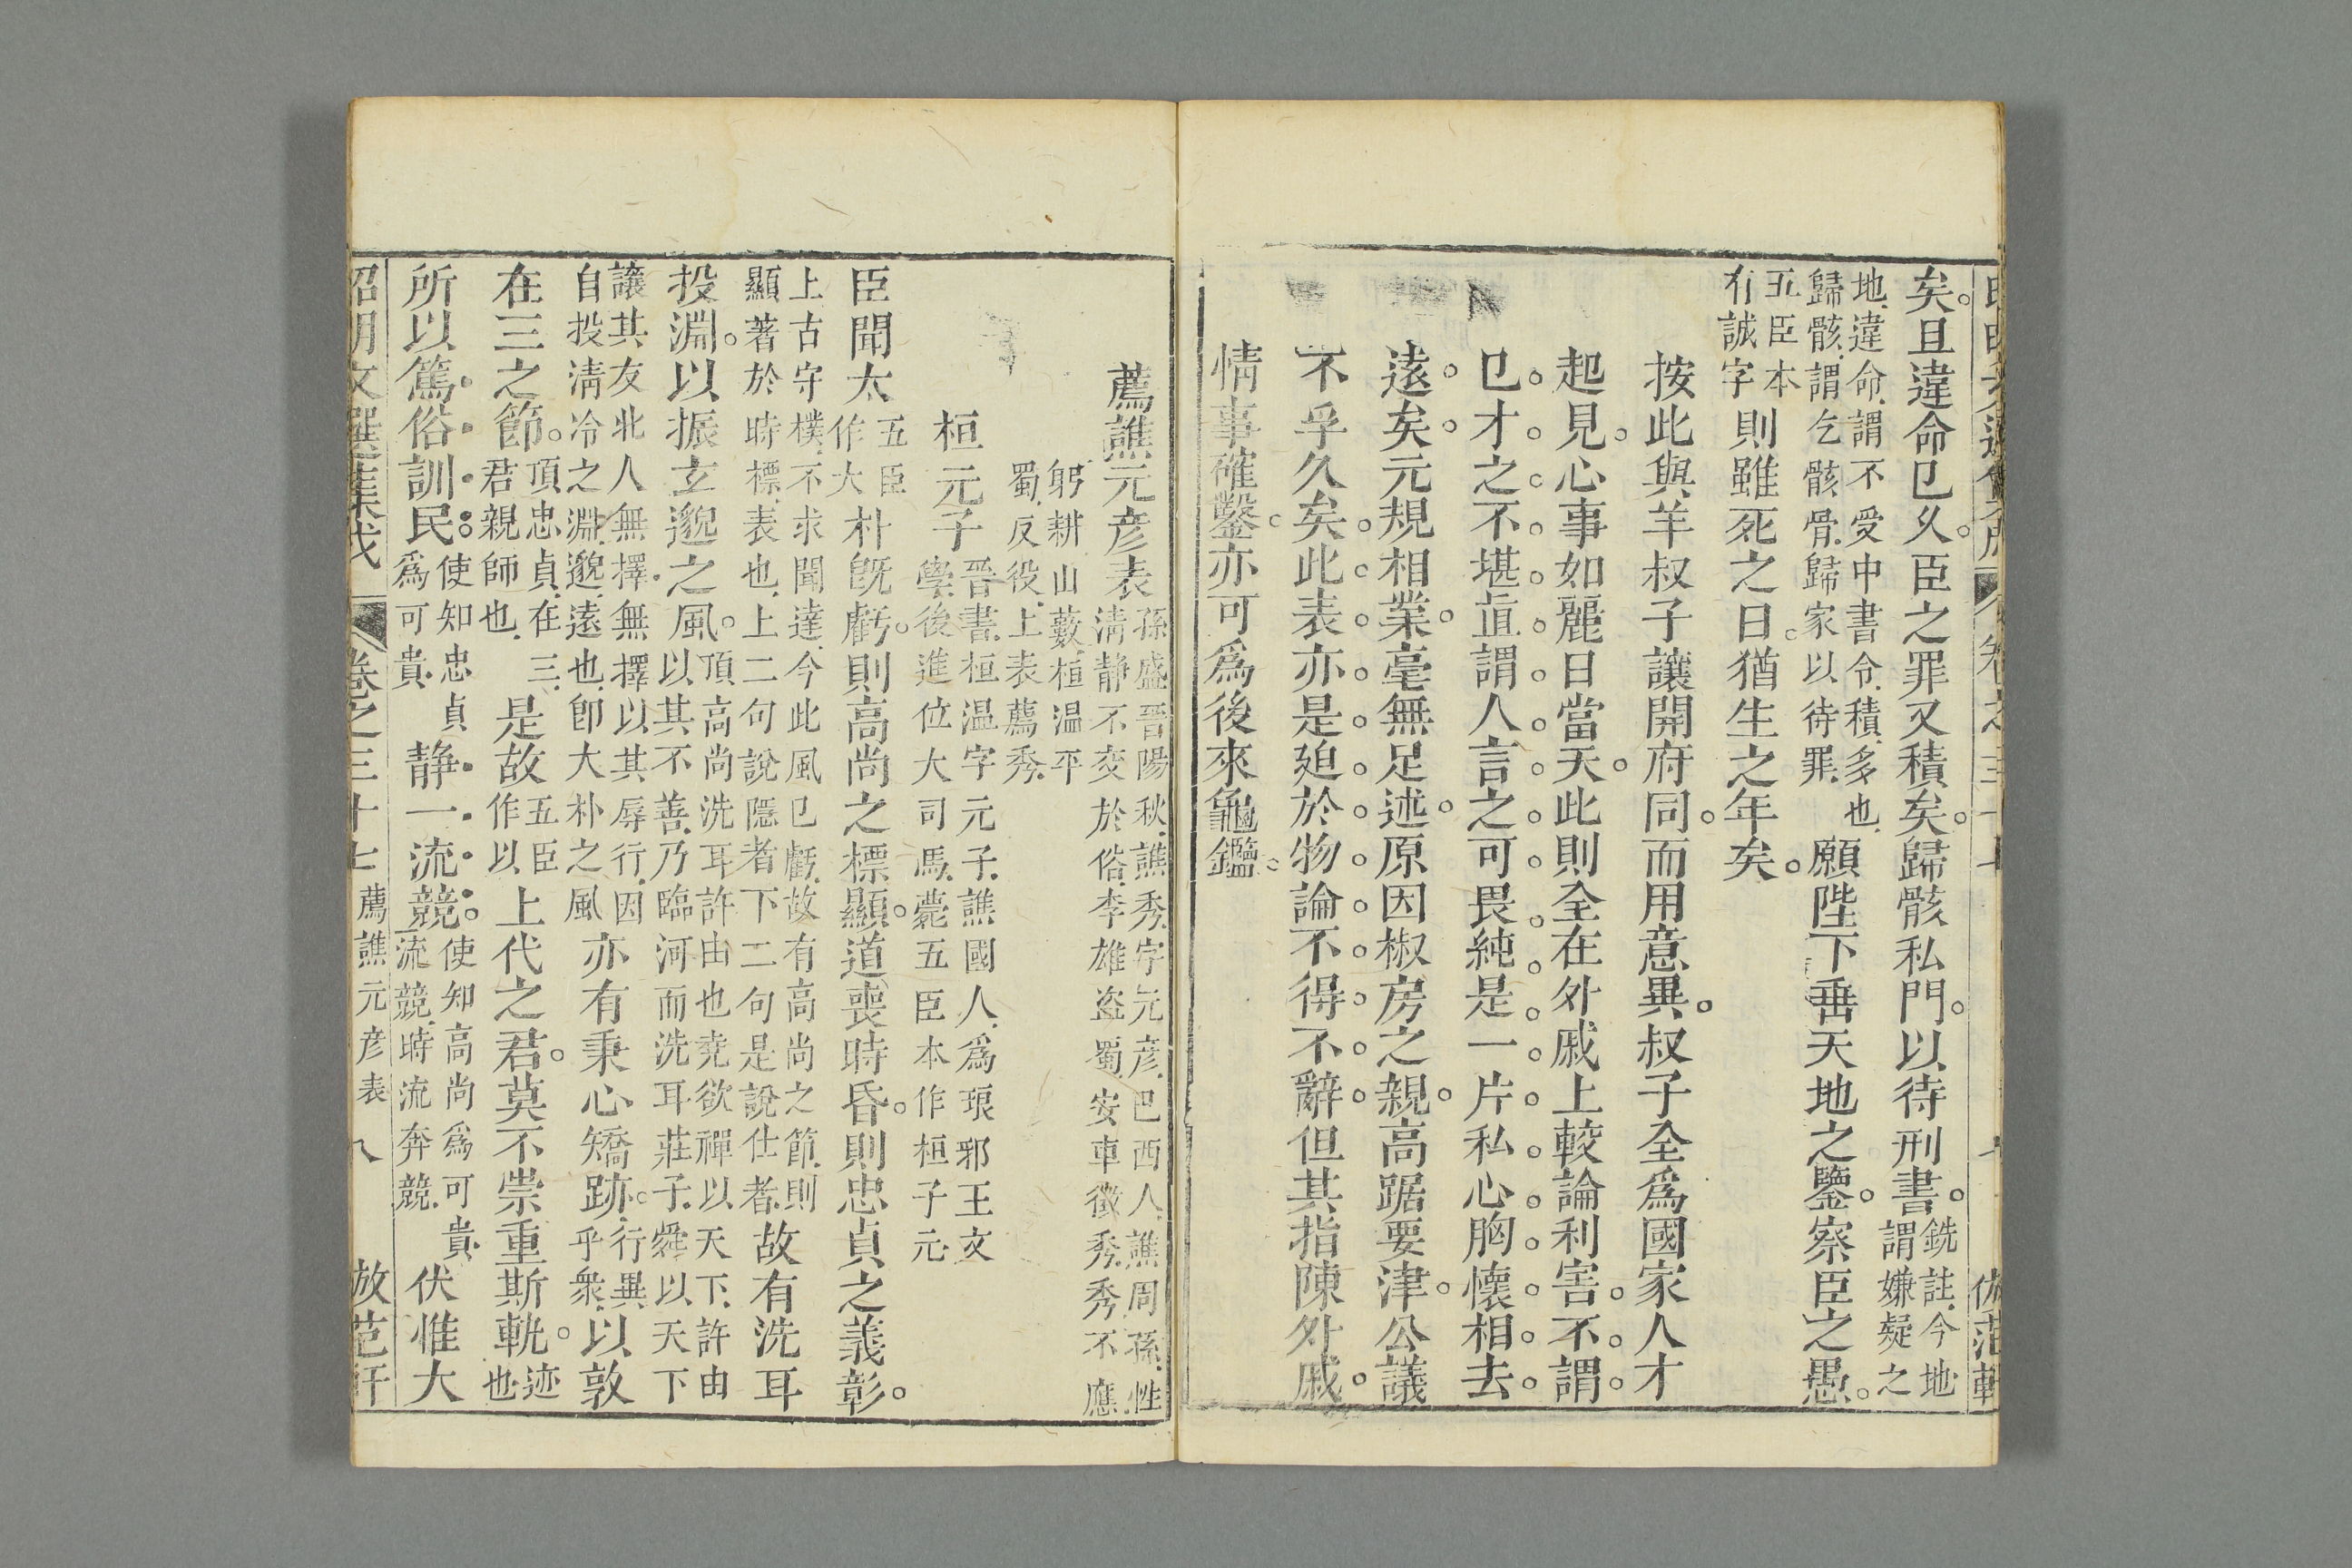 矣。且違命已久。臣之罪又積矣。歸骸私門。以待刑書。銑註、今地謂嫌疑之
地、違命、謂不受中書令、積、多也、歸骸、謂乞骸骨、歸家以待罪、願陛下垂天地之鑒。察臣之愚。
五臣本有誠字則雖死之日。猶生之年矣。
按此與羊叔子讓開府同。而用意異。叔子全爲國家人才
起見。心事如麗日當天。此則全在外戚上較論利害。不謂。
已。才。之。不。堪。直。謂。人。言。之。可。畏。純。是。一。片。私。心。胸。懷。相。去。
遠。矣。元規相業。毫無足述。原因椒房之親。高踞要津。公議
不孚久矣。此。表。亦。是。廹。於。物。論。不。得。不。辭。但其指陳外戚。
情事確鑿。亦可爲後來龜鑑。
薦譙元彥表孫盛晉陽秋、譙秀、字元彥、巴西人、譙周孫、性清静不交於俗、李雄盗蜀、安車徵秀、秀不應
躬耕山藪、桓温平蜀、反役、上表薦秀、
桓元子晉書、桓温字元子、譙國人、爲琅邪王文學、後進位大司馬、薨、五臣本作桓子元、
臣聞太五臣作大朴旣虧。則高尚之標顯。道喪時昏。則忠貞之義彰。
上古守樸、不求聞達、今此風已虧、故有高尚之節、則顯著於時、標、表也、上二句說隱者、下二句是說仕者、故有洗耳
投淵。以振玄邈之風。頂高尚洗耳許由也、尭欲禪以天下、許由以其不善、乃臨河而洗耳、莊子、舜以天下
讓其友北人無擇、無擇以其辱行、因自投淸冷之淵、邈、遠也、卽大朴之風亦有秉心矯跡。行異乎衆、以敦
在三之節。頂忠貞、在三、君親師也、是故五臣作以上代之君。莫不崇重斯軌。迹也、
所以篤俗訓民。使知忠貞爲可貴、静一流競。使知高尚爲可貴、流競、時流奔競、伏惟大
昭明文選集成　卷之三十七　薦譙元彥表　八　倣范軒